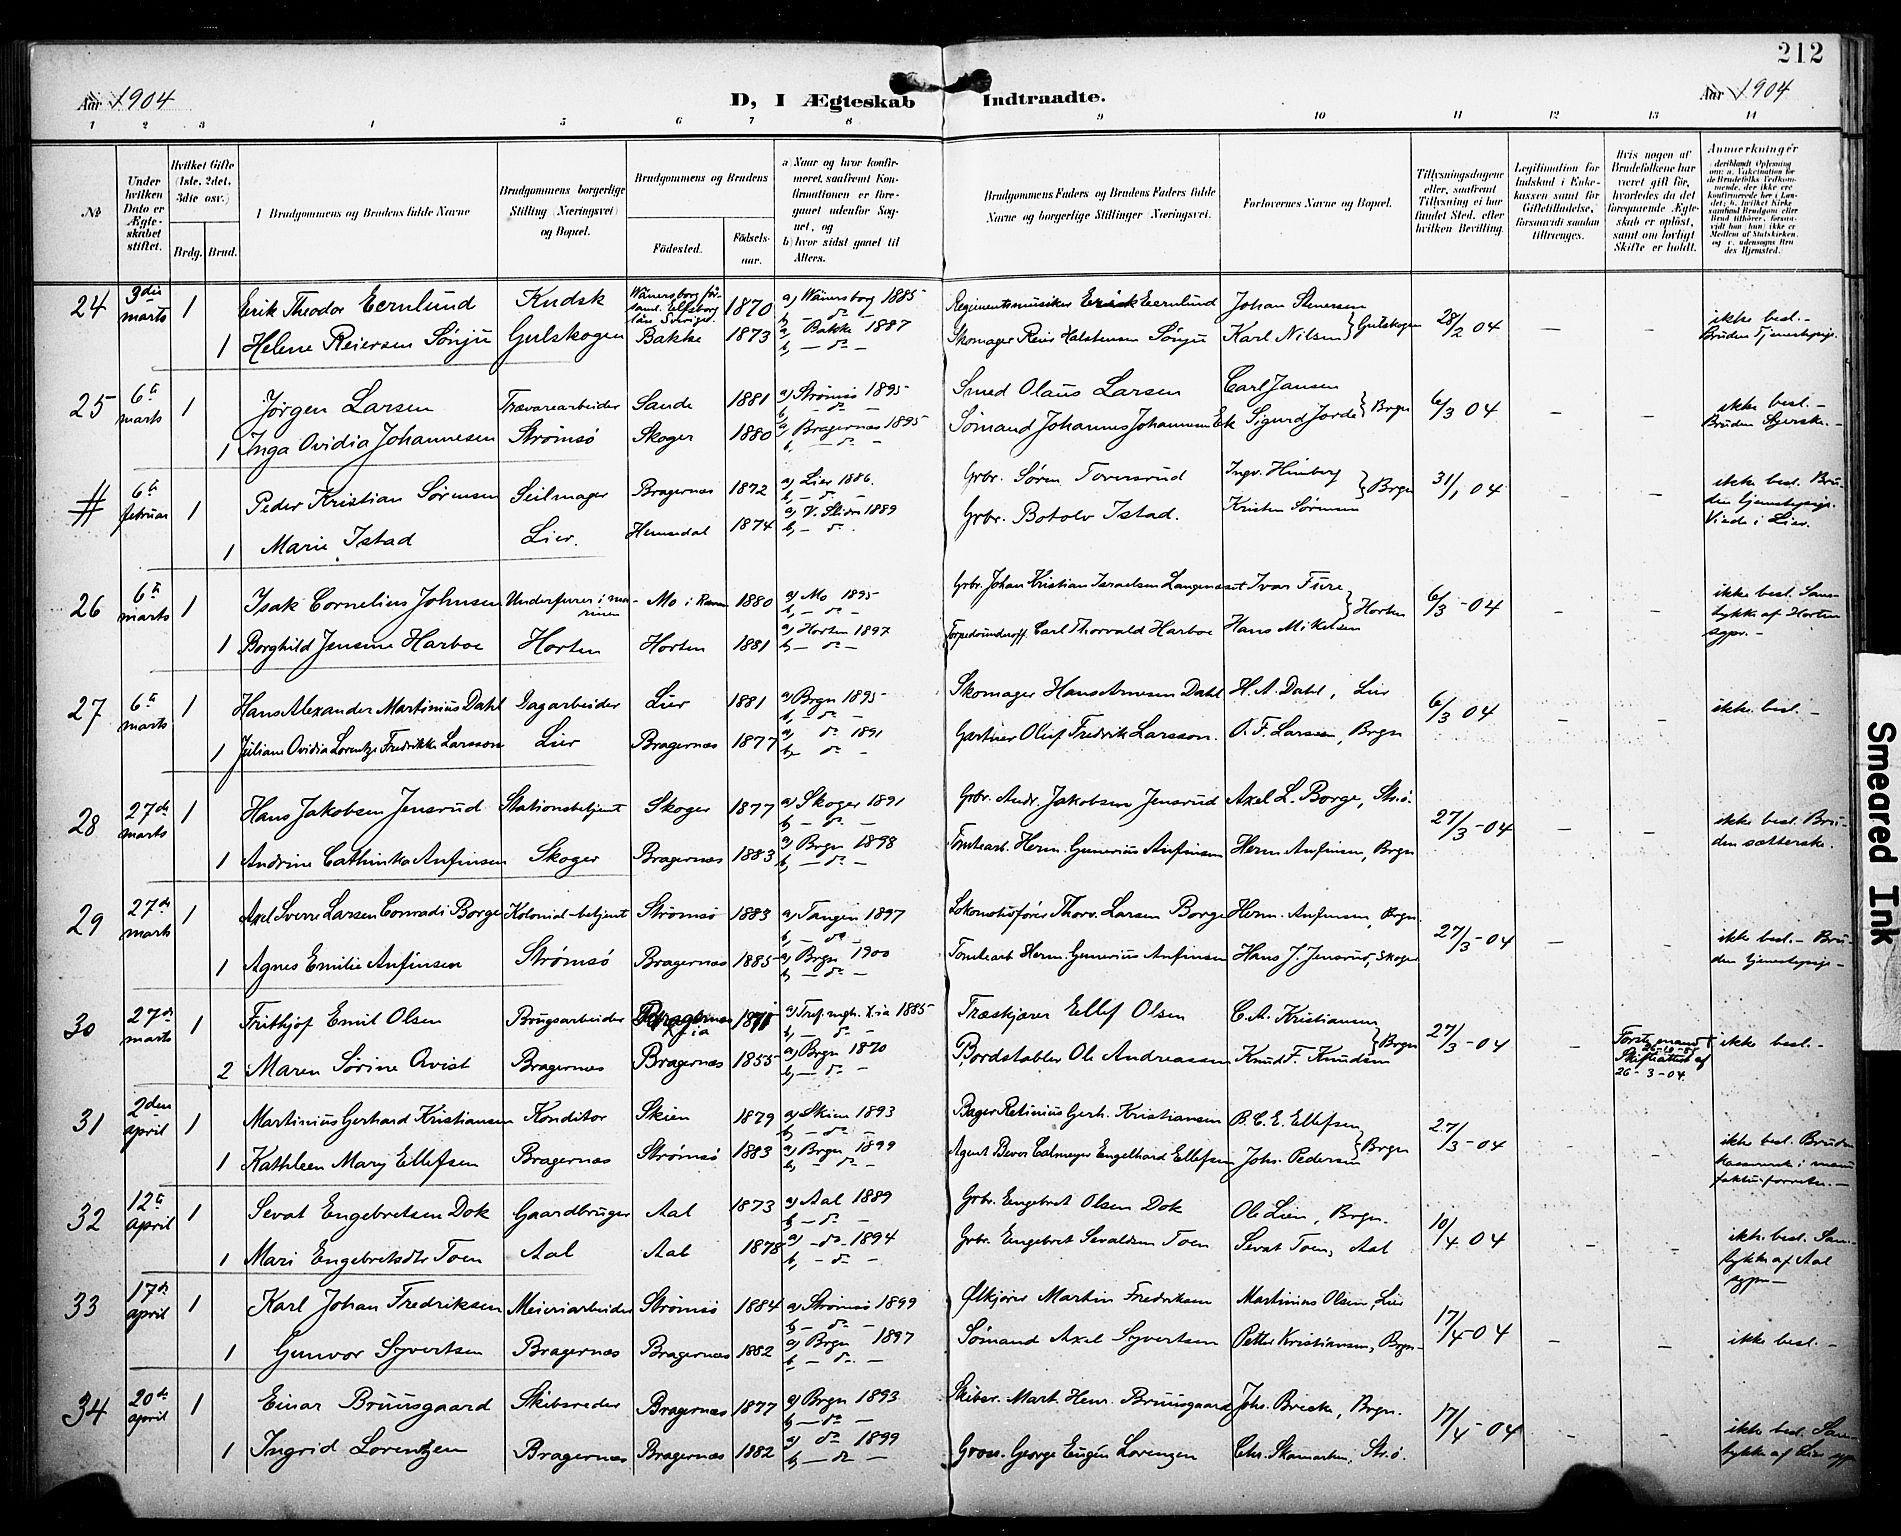 212
Aar 1904
D, I Ægteskab Indtraadte.
Aar 1904
1 2 3 4 5 6 7 8 9 10 11 12 13 14
№
Under hvilken Dato er Ægteskabet stiftet.
Hvilket Gifte (1ste, 2det, 3die osv.)
Brdg. Brud.
1 Brudgommens og Brudens fulde Navne
Brudgommens borgerlige Stilling (Næringsvei) og Bopæl.
Brudgommens og Brudens
Fødested.
Fødselsaar.
a) Naar og hvor konfirmeret, saafremt Konfirmationen er foregaaet udenfor Sognet, og
b) hvor sidst gaaet til Alters.
Brudgommens Faders og Brudens Faders fulde Navne og borgerlige Stillinger (Næringsvei).
Forlovernes Navne og Bopæl.
Tillysningsdagene eller, saafremt Tillysning ei har fundet Sted, efter hvilken Bevilling.
Legitimation for Indskud i Enkekassen samt for Giftetilladelse, forsaavidt saadan tiltrænges.
Hvis nogen af Brudefolkene har været gift før, hvorledes da det foregaaende Ægteskab er opløst, samt om lovligt Skifte er holdt.
Anmerkninger
24 3die marts 1 Erik Theodor Eernlund Kudsk Wänersborg 1870 a) Wänersborg 1885 Regimentsmusiker Erick Eernlund Johan Stenersen 28/2 04 — — ikke besl. —
b — do —
1 Helene Reiersen Sønju Gulskogen Bakke 1873 a) Bakke 1887 Skomager Reier Halstensen Sønju Karl Nilsen } Gulskogen Bruden Tjenestepige.
b, — do —
25 6te marts 1 Jörgen Larsen Trævarearbeider Sande 1881 a) Strömsö 1895 Smed Olaus Larsen Carl Jansen 6/3 04 — — ikke besl. —
b — do —
1 Inga Ovidia Johannesen Strömsö Skoger 1880 a) Bragernæs 1895 Sömand Johannes Johannesen Ek Sigurd Jorde } Brgn Bruden Syerske. —
b, — do —
# 6te februar 1 Peder Kristian Sörensen Seilmager Bragernæs 1872 a) Lier 1886. Grbr. Sören Toverud Ingv. Himberg 31/1 04 — — ikke besl. Bruden tjenestepige.
b, — do —
1 Marie Istad Lier. Hemsedal 1874 a) V. Slidre 1889 Grbr. Botolv Istad. Kristen Sörensen } Brgn Viede i Lier.
b, — do.
26 6te marts 1 Isak Cornelius Johnsen Underfurer i marinen Mo i Ranen 1880 a) Mo 1895 Grbr. Johan Kristian Israelsen Langenæset Ivar Fure 6/3 - 04 — — ikke besl. Samtykke af Horten
b, — do —
1 Borghild Jensine Harboe Horten Horten 1881 a) Horten 1897 Torpedounderoff. Carl Thorvald Harboe Hans Mikelsen } Horten sgpr. —
b — do —
27 6te marts 1 Hans Alexander Martinius Dahl Dagarbeider Lier 1881 a) Brgn 1895 Skomager Hans Arnesen Dahl H. A. Dahl, Lier 6/3 04 — — ikke besl. —
b, — do —
1 Juliane Ovidia Lorentze Fredrikke Larsson Lier Bragernæs 1877 a) do 1891 Gartner Oluf Fredrik Larsson. O. F. Larsson, Brgn
b — do —
28 27de marts 1 Hans Jakobsen Jensrud Stationsbetjent Skoger 1877 a) Skoger 1891 Grbr. Andr. Jakobsen Jensrud Axel L. Borge, Strö. 27/3 - 04 — — ikke besl. Bruden sætterske.
b — do —
1 Andrine Cathinka Anfinsen Skoger Bragernæs 1883 a) Brgn 1898 Tomtearb. Herm. Gunerius Anfinsen Herm Anfinsen, Brgn
b, — do —
29 27de marts 1 Axel Sverre Larsen Conradi Borge Kolonial-betjent Strömsö 1883 a) Tangen 1897 Lokomotivförer Thorv. Larsen Borge Herm. Anfinsen, Brgn. 27/3 - 04 — — ikke besl. — Bruden tjenestepige —
b, — do —
1 Agnes Emilie Anfinsen Strömsö Bragernæs 1885 a) Brgn 1900 Tomtearb. Herm. Gunerius Anfinsen Hans J. Jensrud, Skoger
b — do —
30 27de marts 1 Frithjof Emil Olsen Brugsarbeider 1871 1885 Træskjærer Ellef Olsen C. A. Kristiansen 27/3 - 04 — Første mand Skifteattest af 26-3-04. ikke besl. —
b, — do —
2 Maren Sörine Qvist Bragernæs Bragernæs 1855 a) Brgn 1870 Bordstabler Ole Andreassen Knud F. Knudsen } Brgn
b, — do —
31 2den april 1 Martinius Gerhard Kristiansen Konditor Skien 1879 a) Skien 1893 Bager Retinius Gerh. Kristiansen B. C. E. Ellefsen 27/3 - 04 — — ikke besl. Bruden
b — do —
1 Kathleen Mary Ellefsen Bragernæs Strömsö 1883 a) Brgn 1899 Agent Bever Calmeyer Engelhard Ellefsen Johs. Pedersen } Brgn
b, — do —
32 12te april 1 Sevat Engebretsen Dok Gaardbruger Aal 1873 a) Aal 1889 Grbr. Engebret Olsen Dok Ole Lien, Brgn. 10/4 04 — — ikke besl. Samtykke af Aal sgpr —
b, — do —
1 Mari Engebretsdtr Toen Aal Aal 1878 a) — do — 1894 Grbr. Engebret Sevaldsen Toen Sevat Toen, Aal
b, — do —
33 17de april 1 Karl Johan Fredriksen Meieriarbeider Strömsö 1884 a) Strömsö 1899 Ølkjører Martin Fredriksen Martinius Olsen, Lier 17/4 - 04 — — ikke besl. —
b, — do —
1 Gunvor Syvertsen Bragernæs Bragernæs 1882 a) Brgn 1897 Sömand Axel Syvertsen Petter Kristiansen, Brgn —
b — do —
34 20de april 1 Einar Bruusgaard Skibsreder Bragernæs 1877 a) Brgn 1893 Skibsr. Mart. Henr. Bruusgaard Johs. Brecke, Brgn. 17/4 - 04 — — ikke besl. Samtykke af Lier sgpr
b, — do —
1 Ingrid Lorentzen Bragernæs Bragernæs 1882 a) do 1899 Gross. George Eugen Lorenzen Chr. Skamarken, Strö.
b, — do —
Smeared Ink